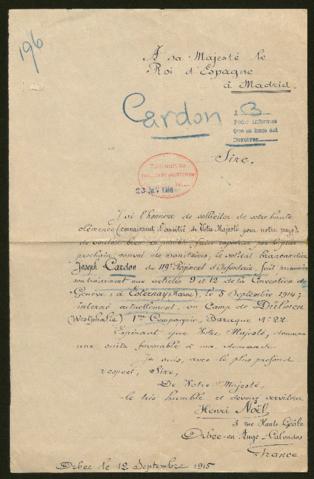 196
A sa Majesté le
Roi d'Espagne
à Madrid.
Cardon
Sire,
J'ai l'honneur de solliciter de votre haute
clémence (connaissant l'amitié de Votre Majesté pour notre pays)
de vouloir bien faire rapatrier par le plus
prochain convoi de sanitaires, le soldat brancardier
Joseph Cardon du 119e Régiment d'Infanterie, fait prisonnier
contrairement aux articles 9 et 12 de la Convention de
Genève, à Esternay (Marne), le 5 Septembre 1914;
interné actuellement au Camp de Dülmen
(Westphalie) 1ère Compagnie, Baraque No 22.
Espérant que Votre Majesté, donnera
une suite favorable à ma demande
Je suis, avec le plus profond
respect, Sire,
De Votre Majesté,
le très humble et dévoué serviteur
Henri Noël
3 rue Haute Geôle
Orbec-en-Auge - Calvados
France
Orbec le 12 Septembre 1915